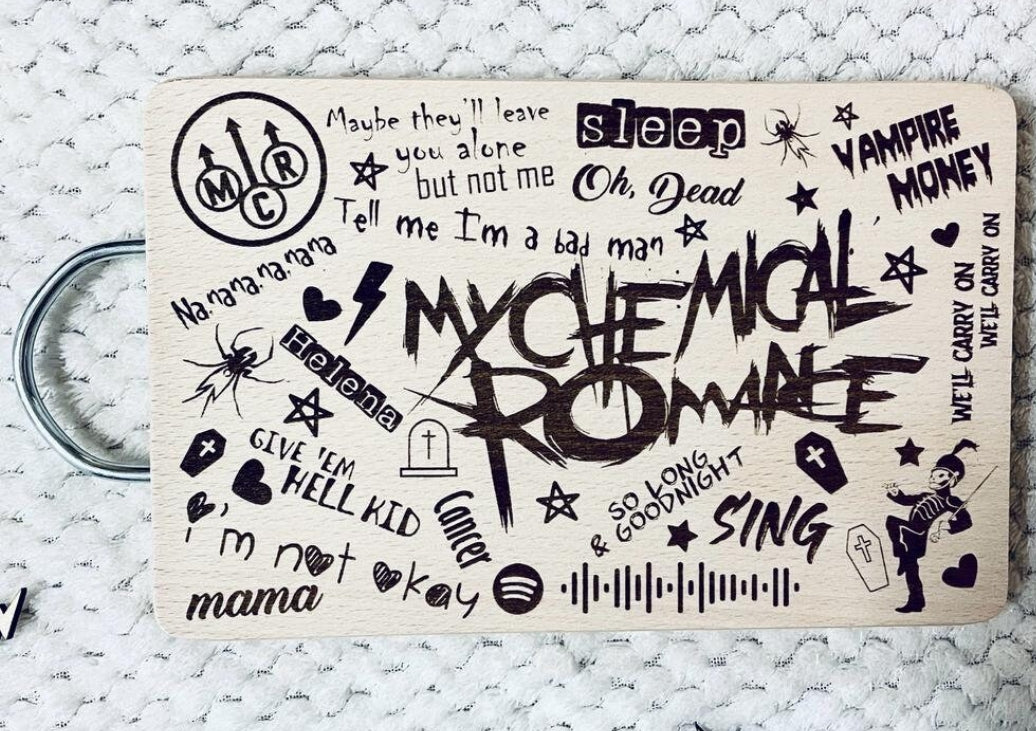 M C R
Maybe they'll leave
you alone
but not me
sleep
Oh, Dead
VAMPIRE
MONEY
Tell me I'm a bad man
Na, na na, na, na na
MY CHEMICAL
ROMANCE
WE'LL CARRY ON
WE'LL CARRY ON
Helena
GIVE 'EM
HELL KID
Cancer
SO LONG
& GOODNIGHT
SING
i'm not okay
mama